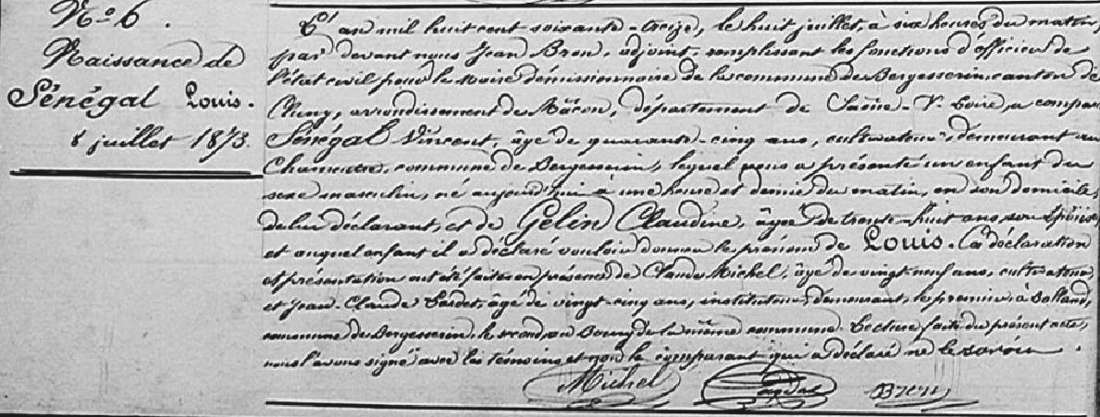 N.º 6.
Naissance de
Sénégal Louis.
8 juillet 1873.
L'an mil huit cent soixante-treize, le huit juillet, à six heures du matin,
par devant nous Jean Bron, adjoint, remplissant les fonctions d'officier de
l'état civil pour le Maire démissionnaire de la commune de Bergesserin, canton de
Cluny, arrondissement de Mâcon, département de Saône-&-Loire, a comparu
Sénégal Vincent, âgé de quarante-cinq ans, cultivateur, demeurant au
commune de Bergesserin, lequel nous a présenté un enfant du
sexe masculin, né aujourd'hui à une heure et demie du matin, en son domicile,
de lui déclarant, et de Gelin Claudine, âgée de trente-huit ans, son épouse,
et auquel enfant il a déclaré vouloir donner le prénom de Louis. La déclaration
et présentation ont été faites en présence de Claude Michel, âgé de vingt neuf ans, cultivateur,
et Jean-Claude âgé de vingt-cinq ans, instituteur, demeurant, le premier à
commune de Bergesserin, le second, au Bourg de la même commune. Lecture faite du présent acte,
nous l'avons signé avec les témoins, et non le comparant qui a déclaré ne le savoir.
Michel Bron